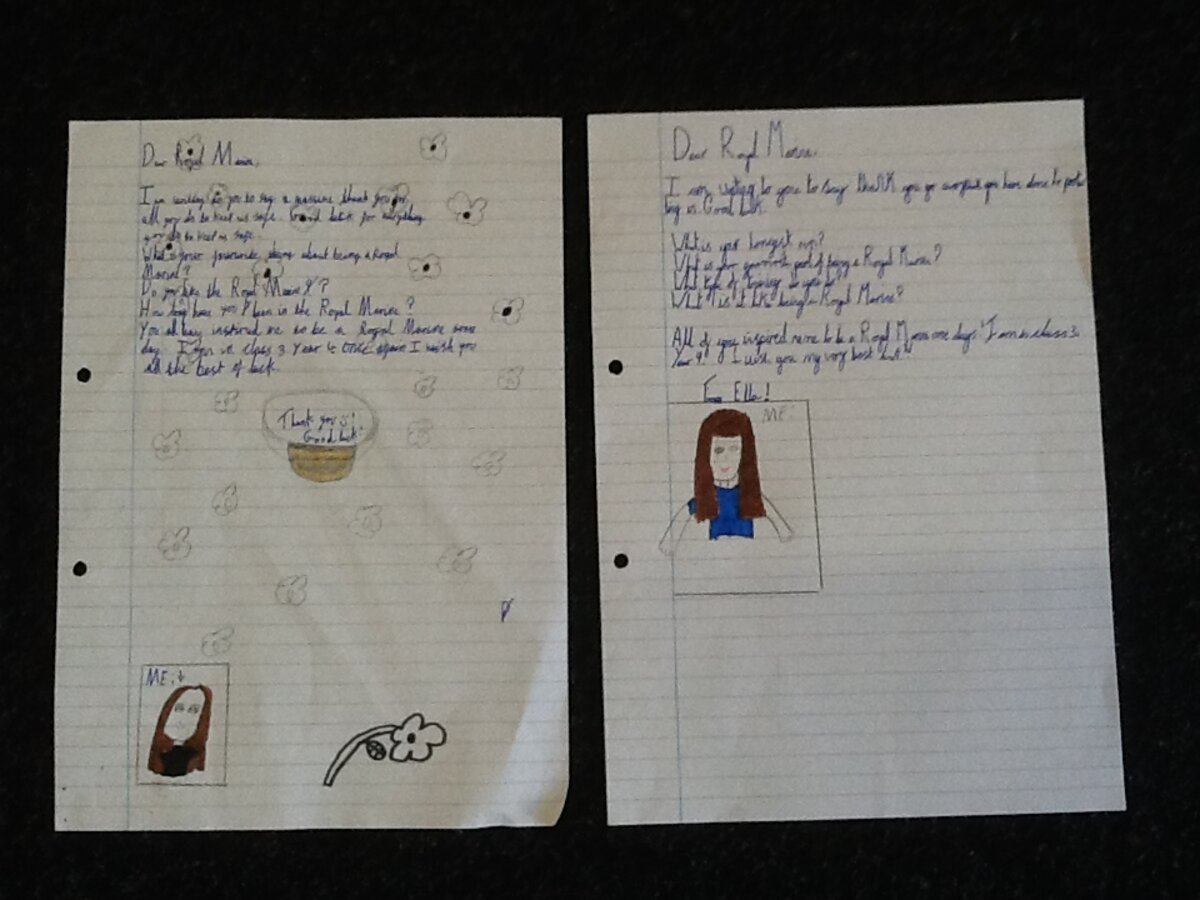 Dear Royal Marine,
I am writing to you to say a massive thank you for
all you do to keep us safe. Good luck for everything
you do to keep us safe.
What's your favourite thing about being a Royal
Marine?
Do you like the Royal Marine's?
How long have you been in the Royal Marine?
You all have inspired me to be a Royal Marine some
day. I am in class 3 Year 4 Once again I wish you
all the best of luck.
Thank you's!
Good luck!
ME:
Dear Royal Marine,
I am writing to you to say thank you you have done to
is Good luck.
What is your longest run?
What is your part of being a Royal Marine?
What type of training do you do?
What is it like being a Royal Marine?
All of you inspired me to be a Royal Marine one day. I am in class 3
Year 4! I wish you my very best luck
Ella!
ME: